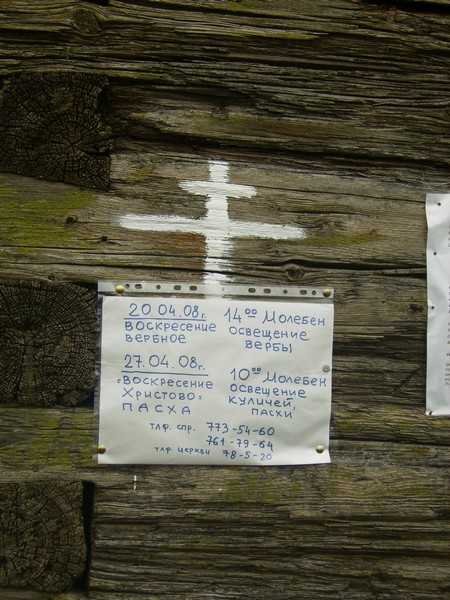 20.04.08г. 14⁰⁰ Молебен
ВОСКРЕСЕНИЕ ОСВЕЩЕНИЕ
ВЕРБНОЕ ВЕРБЫ
27.04.08г. 10⁰⁰ Молебен
"ВОСКРЕСЕНИЕ ОСВЕЩЕНИЕ
ХРИСТОВО" КУЛИЧЕЙ
ПАСХА ПАСКИ
тлф. спр. 773-54-60
761-79-64
тлф церкви 78-5-20